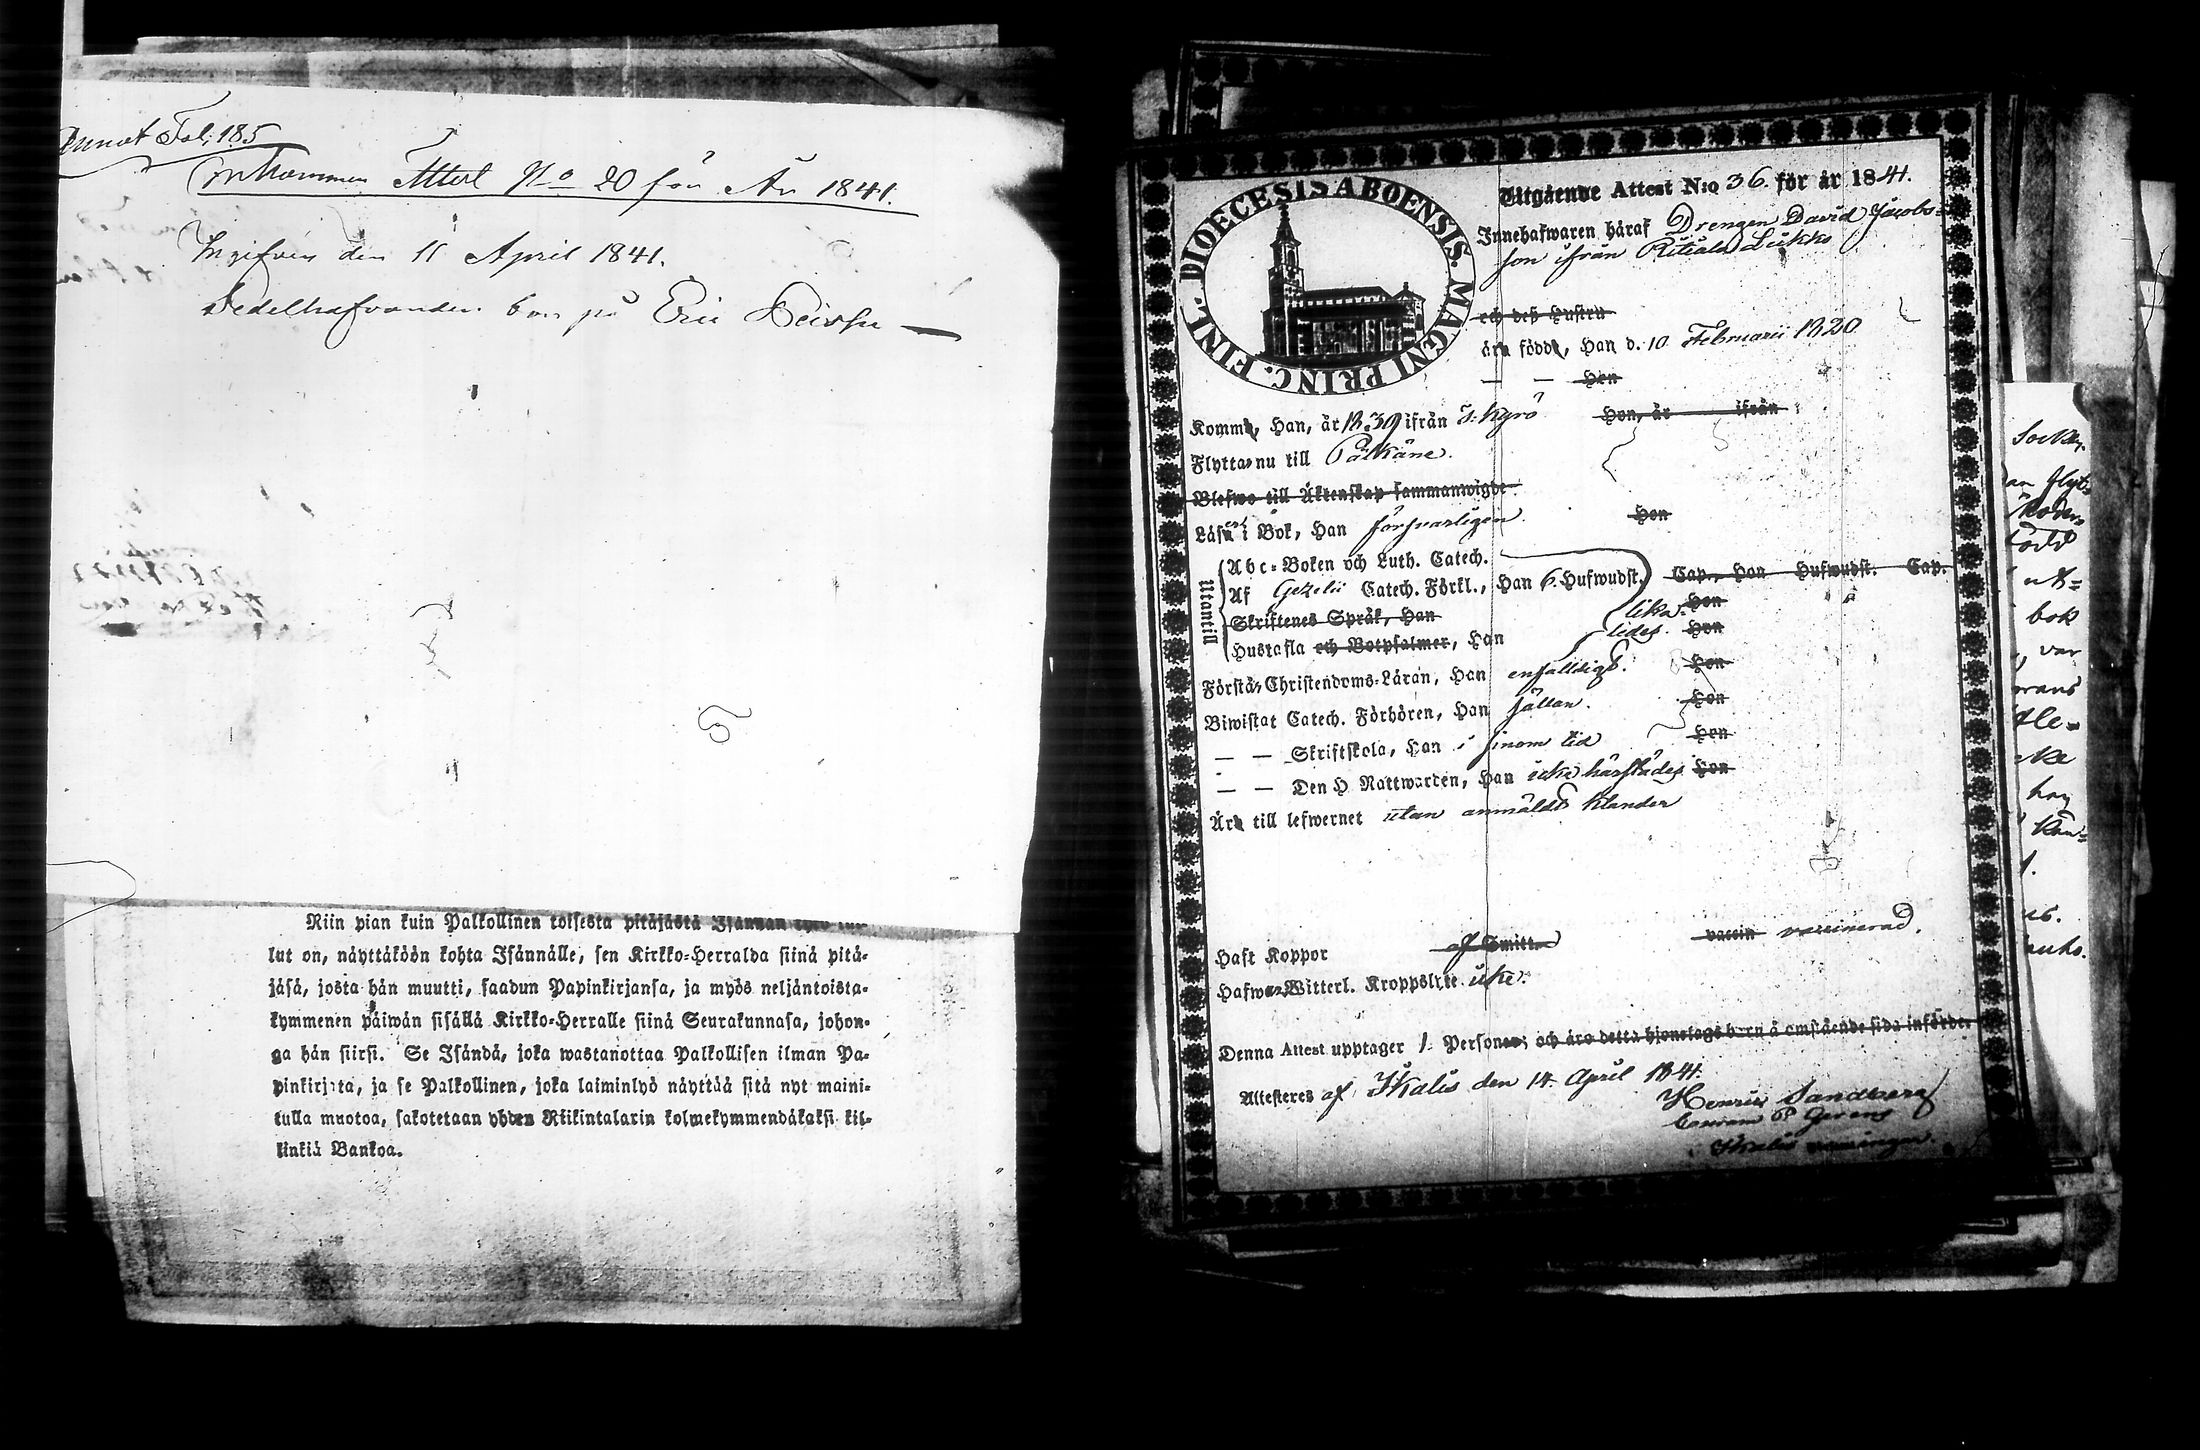 Annot Fol. 185
Inkommen Attest No 20 för År 1841.
Ingifven den 11 April 1841.
Sedelhafvanden bor på Eric
Niin pian kuin Palkollinen toisesta pitäjästä Isännän
lut on, näyttäköön kohta Isännälle, sen Kirkko-Herralda siinä pitä-
jäsä, josta hän muutti, saadun Papinkirjansa, ja myös neljäntoista-
kymmenen päiwän sisällä Kirkko-Herralle siinä Seurakunnasa, johon-
ga hän siirsi. Se Isändä, joka wastanottaa Palkollisen ilman Pa-
pinkirjata, ja se Palkollinen, joka laiminlyö näyttää sitä nyt maini-
tulla muotoa, sakotetaan yhden Riikintalarin kolmekymmendäkaksi kil-
linkiä Bankoa.
DIOECESIS ABOENSIS. MAGNI PRINC. FINL.
Utgående Attest N:o 36. för år 1841.
Innehafwaren häraf Drengen David Jacobs-
son ifrån Riitiala Liukko
och deß Hustru
äro född, Han d. 10 Februarii 1820
— — Hon
Komm, Han, år 1839 ifrån T: Kyrö Hon, år ifrån
Flyttar nu till Pälkäne.
Blefwo till Äktenskap sammanwigde
Läser i Bok, Han försvarligen Hon
Utantill
Abc-Boken och Luth. Catech.
Af Gezelii Catech. Förkl., Han 6. Hufwudst. Cap., Hon Hufwudst. Cap.
Skriftenes Språk, Han lika- Hon
Hustafla och Botpsalmer, Han ledes. Hon
Förstår Christendoms-Läran, Han enfalldigt. Hon
Biwistat Catech. Förhören, Han sällan. Hon
— — Skriftskola, Han i sinom tid Hon
— — Den H. Nattwarden, Han icke härstädes Hon
Är till lefwernet utan anmäldt klander
Haft Koppor af Smitta vaccin vaccinerad.
Hafwer Witterl. Kroppslyte icke.
Denna Attest upptager 1. Personer; och äro detta hjonelags barn å omstående sida införde.
Attesteras af Ikalis den 14. April 1841.
Henric Sandberg
Ikalis
Socken,
an flyt-
född
ut-
bok
, var
orans
hog
1.